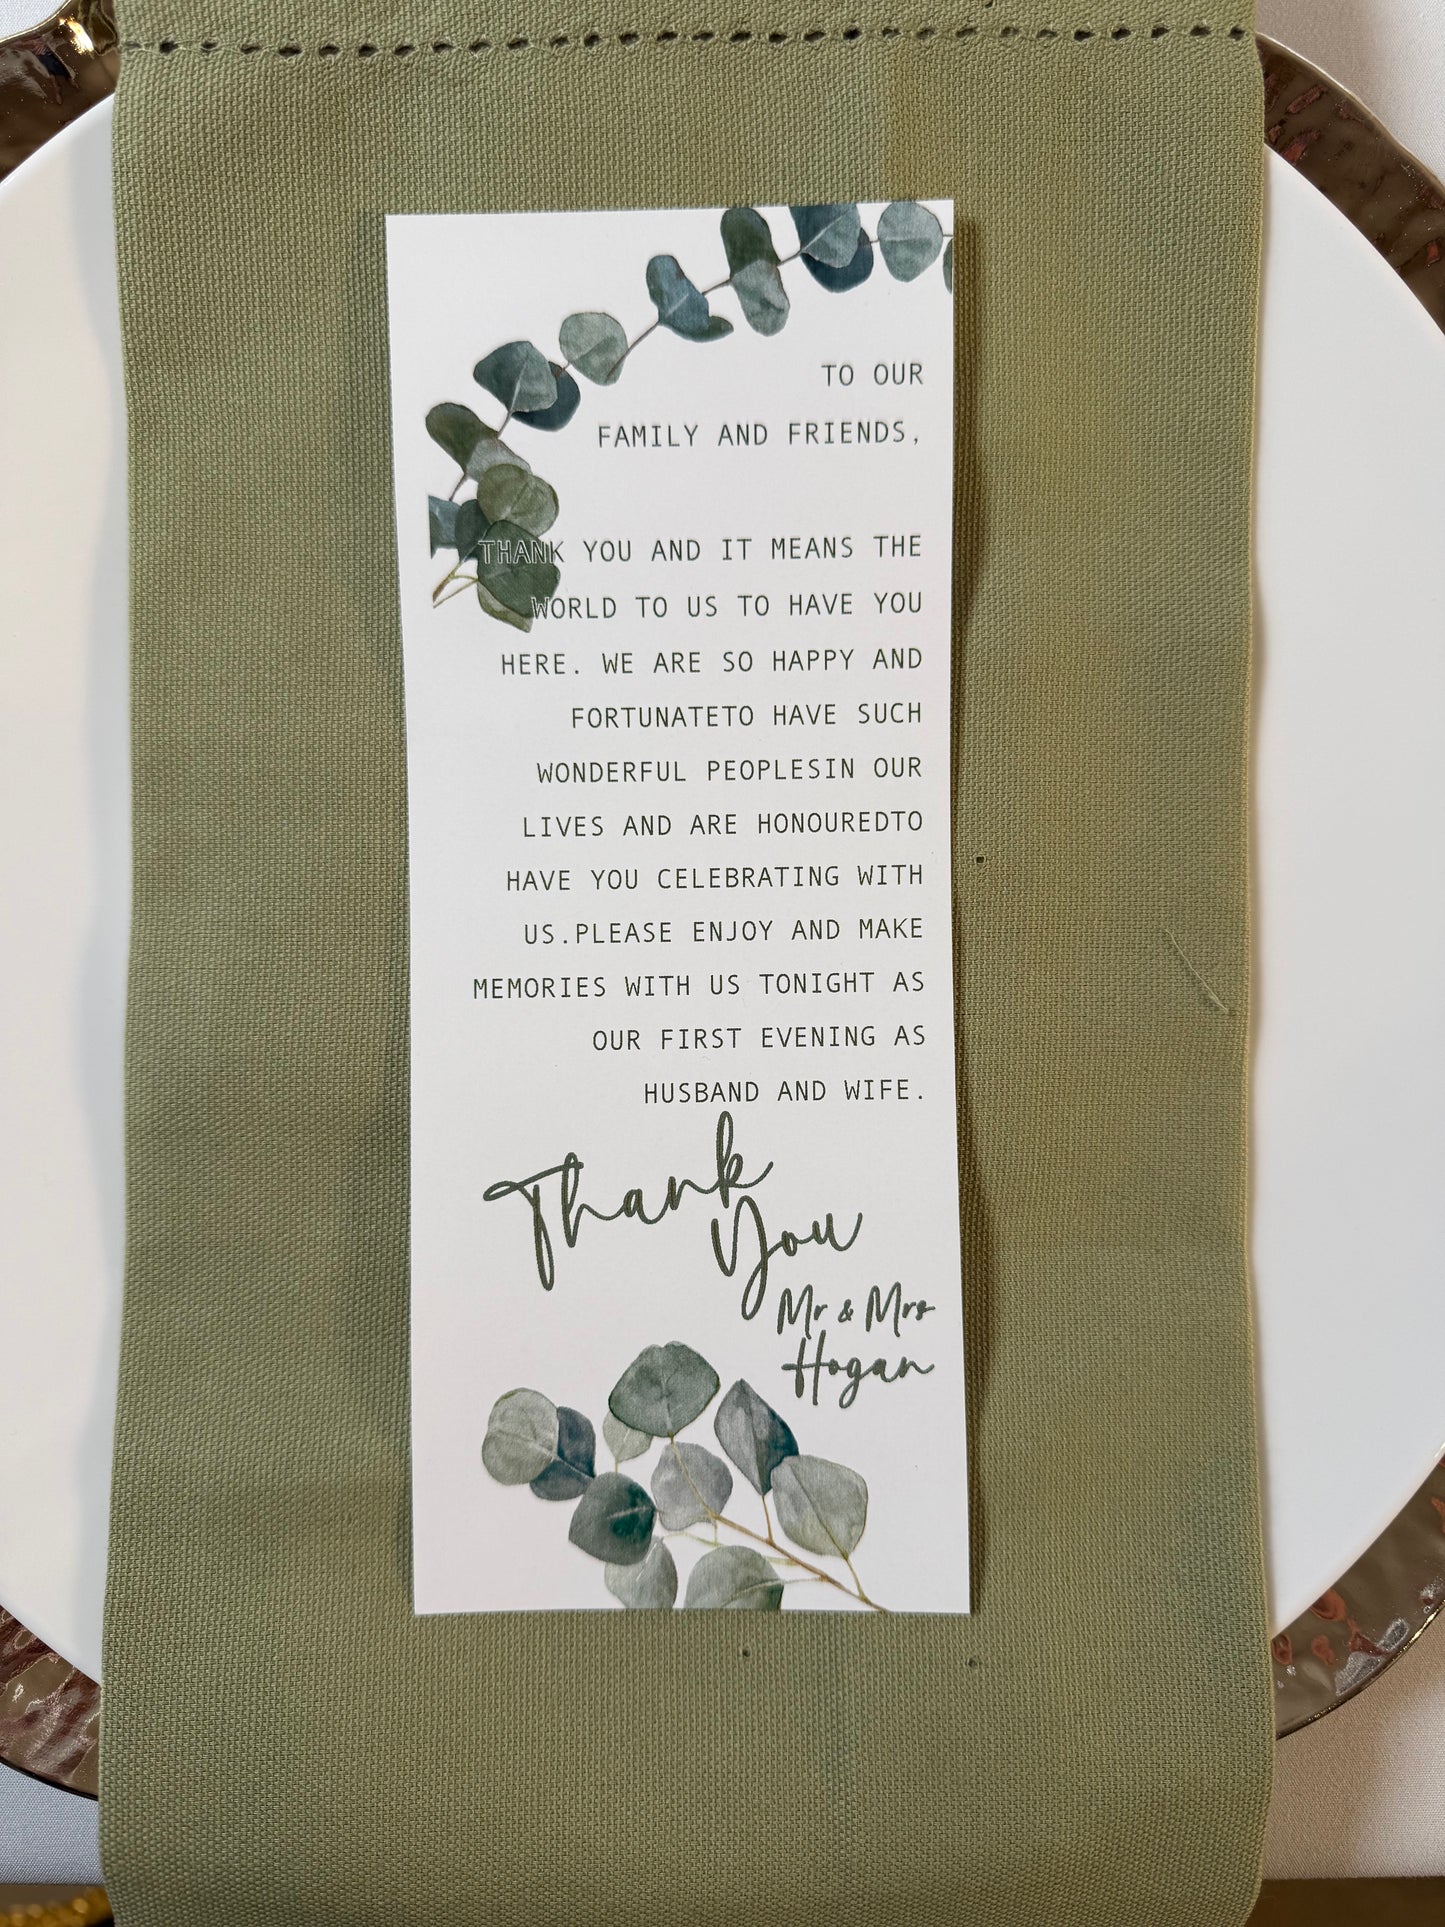 TO OUR
FAMILY AND FRIENDS,
THANK YOU AND IT MEANS THE
WORLD TO US TO HAVE YOU
HERE. WE ARE SO HAPPY AND
FORTUNATETO HAVE SUCH
WONDERFUL PEOPLESIN OUR
LIVES AND ARE HONOUREDTO
HAVE YOU CELEBRATING WITH
US.PLEASE ENJOY AND MAKE
MEMORIES WITH US TONIGHT AS
OUR FIRST EVENING AS
HUSBAND AND WIFE.
Thank
You
Mr & Mrs
Hogan